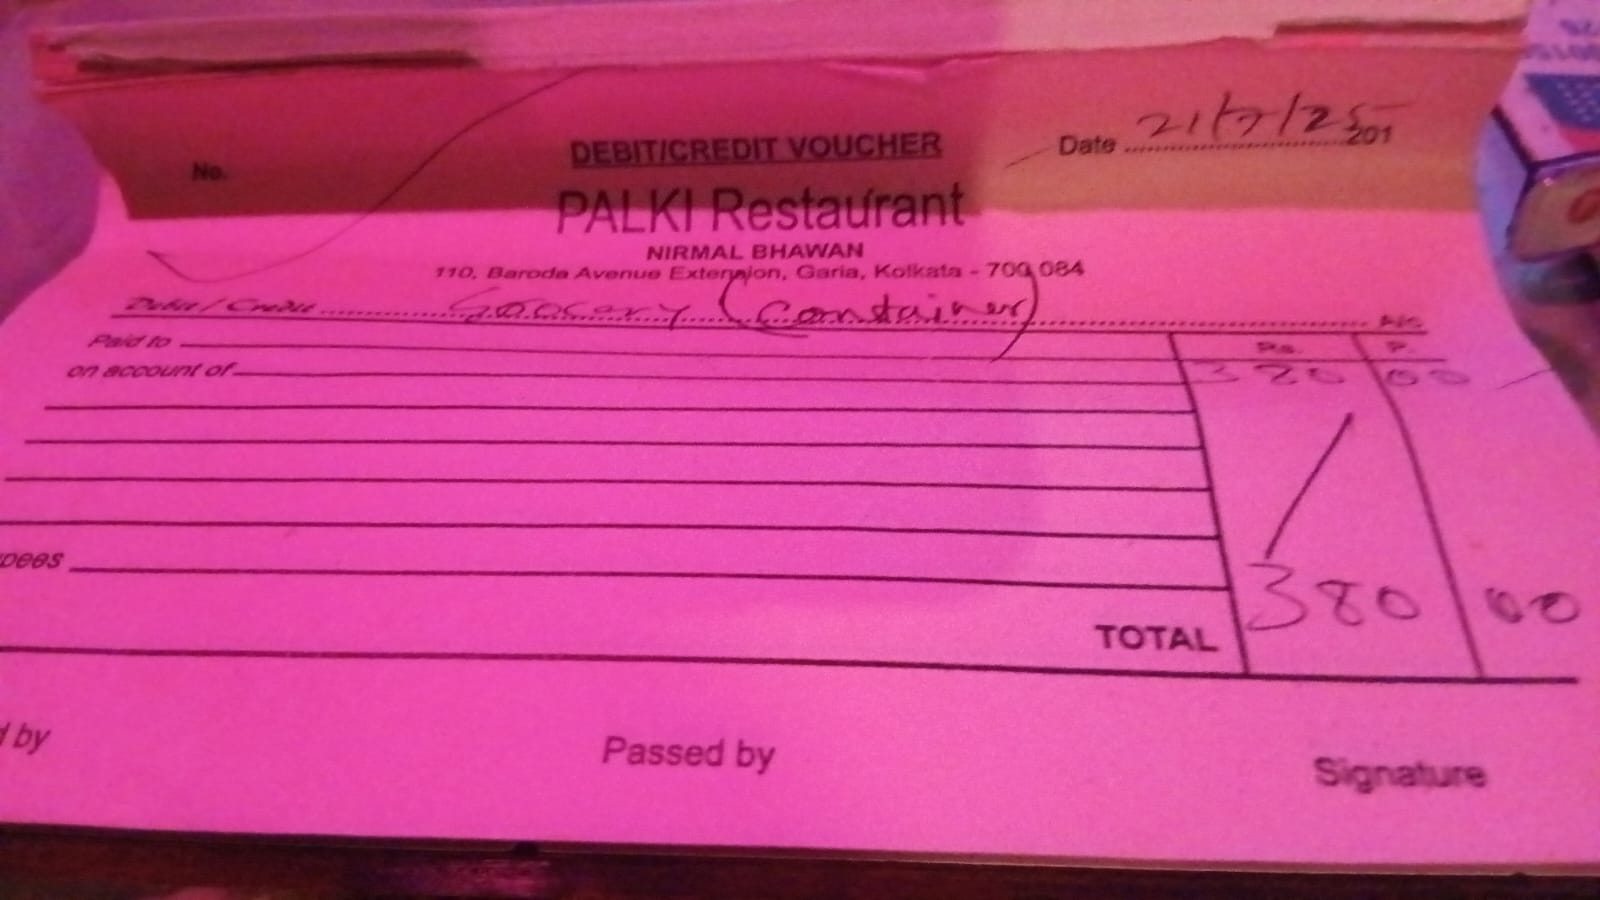 No. DEBIT/CREDIT VOUCHER Date 21/7/25 201
PALKI Restaurant
NIRMAL BHAWAN
110, Baroda Avenue Extension, Garia, Kolkata - 700 084
Debit / Credit Groosary (Container) A/c
Paid to Rs. P.
on account of 380 00
pees
TOTAL 380 00
d by Passed by Signature